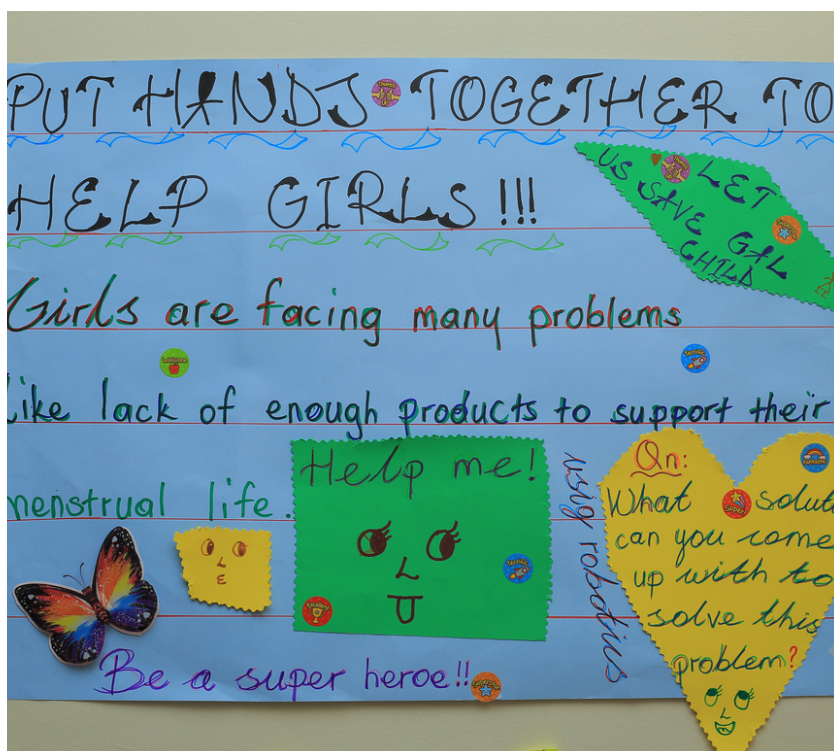 PUT HANDS TOGETHER TO
HELP GIRLS !!!
LET
US SAVE GAL
CHILD
Girls are facing many problems
Like lack of enough products to support their
menstrual life.
Help me!
using robotius
Qn:
What solut
can you come
up with to
solve this
problem?
Be a super heroe!!